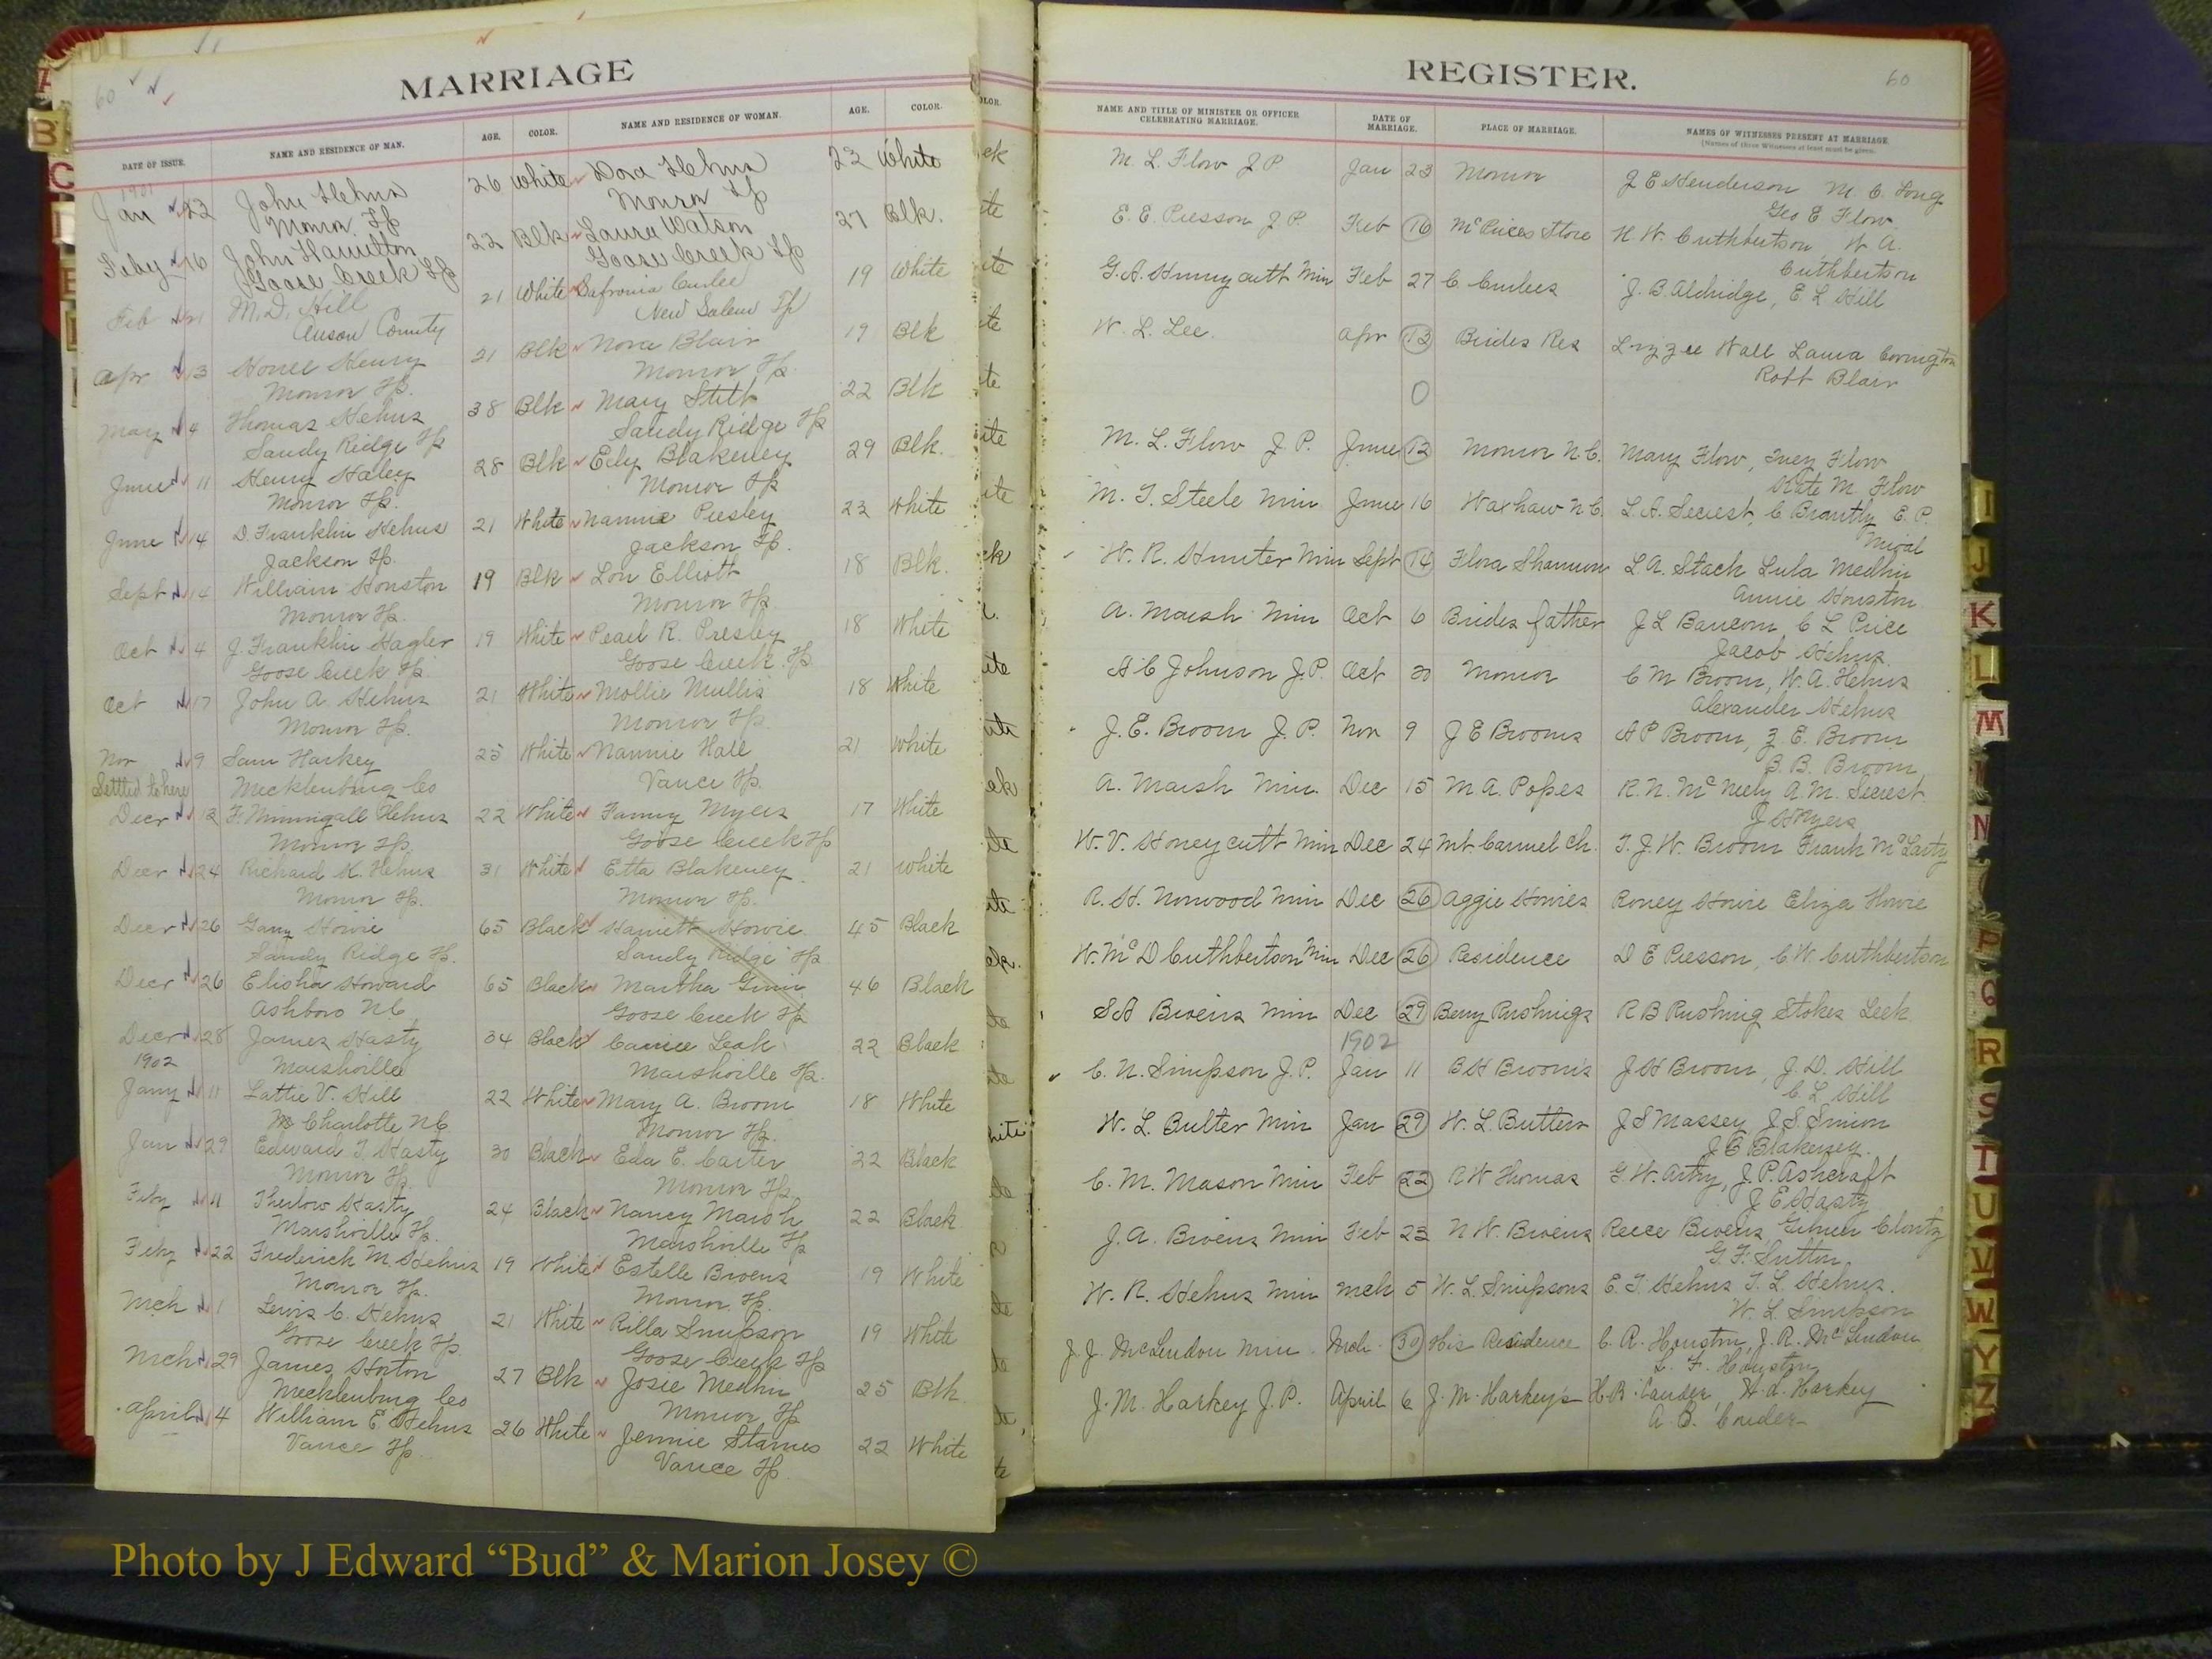 60
MARRIAGE
DATE OF ISSUE. NAME AND RESIDENCE OF MAN. AGE. COLOR. NAME AND RESIDENCE OF WOMAN. AGE. COLOR.
1901
Jan 23 John Helms 26 White Dora Helms 23 White
Monroe Tp Monroe Tp
Feby 16 John Hamilton 22 Blk Laura Watson 27 Blk.
Goose Creek Tp Goose Creek Tp
Feb 21 M. D. Hill 21 White Safronia Curlee 19 White
Anson County New Salem Tp
Apr 13 Henry 21 Blk Nora Blair 19 Blk
Monroe Tp. Monroe Tp.
May 4 Thomas Helms 38 Blk Mary Stitt 22 Blk
Sandy Ridge Tp Sandy Ridge Tp
June 11 Henry Haley 28 Blk Blakeney 29 Blk.
Monroe Tp. Monroe Tp
June 14 D. Franklin Helms 21 White Nannie Presley 23 White
Jackson Tp. Jackson Tp.
Sept 14 William Houston 19 Blk Lou Elliott 18 Blk.
Monroe Tp. Monroe Tp.
Oct 4 J. Franklin Hagler 19 White Pearl R. Presley 18 White
Goose Creek Tp. Goose Creek Tp.
Oct 17 John A. Helms 21 White Mollie Mullis 18 White
Monroe Tp. Monroe Tp.
Nov 9 Sam Harkey 25 White Nannie Hall 21 White
Settled to here Mecklenburg Co Vance Tp.
Decr 12 F. Helms 22 White Fanny Myers 17 White
Monroe Tp. Goose Creek Tp
Decr 24 Richard K. Helms 31 White Etta Blakeney 21 White
Monroe Tp. Monroe Tp.
Decr 26 Howie 65 Black Harriett Howie 45 Black
Sandy Ridge Tp. Sandy Ridge Tp.
Decr 26 Elisha Howard 65 Black Martha 46 Black
Ashboro N.C. Goose Creek Tp
Decr 28 James Hasty 34 Black Leak 22 Black
1902 Marshville Marshville Tp.
Jany 11 Lattie V. Hill 22 White Mary A. Broom 18 White
Charlotte N.C. Monroe Tp.
Jan 29 Edward T. Hasty 30 Black Eda E. Carter 22 Black
Monroe Tp. Monroe Tp.
Feby Thurlow Hasty 24 Black Nancy Marsh 22 Black
Marshville Tp. Marshville Tp
Feby 22 Frederick M. Helms 19 White Estelle Bivens 19 White
Monroe Tp. Monroe Tp.
Mch 1 Lewis C. Helms 21 White Rilla Simpson 19 White
Goose Creek Tp. Goose Creek Tp
Mch 29 James Horton 27 Blk Josie Medlin 25 Blk
Mecklenburg Co Monroe Tp
April 4 William E Helms 26 White Jennie Starnes 22 White
Vance Tp. Vance Tp.
REGISTER.
60
NAME AND TITLE OF MINISTER OR OFFICER CELEBRATING MARRIAGE. DATE OF MARRIAGE. PLACE OF MARRIAGE. NAMES OF WITNESSES PRESENT AT MARRIAGE
[Names of three Witnesses at least must be given.
M. L. Flow J P. Jan 23 Monroe J E Henderson M. C. Long
Geo E Flow
E. E. Presson J. P. Feb 16 Store H. W. Cuthbertson W A.
Cuthbertson
G. A. Hunnycutt Min Feb 27 C. Curlees J. B. Aldridge, E. L. Hill
W. L. Lee. Apr 13 Brides Res Lizzie Wall Laura Covington
Robt Blair
0
M. L. Flow J P. June 12 Monroe N.C. Mary Flow, Inez Flow
Kate M Flow
M. T. Steele Min June 16 Waxhaw N.C. L. A. Secrest, C Brantly E. P.
W. R. Hunter Min Sept 14 Flora Shannon L. A. Stack Lula Medlin
Annie Houston
A. Marsh Min Oct 6 Brides father J L Baucom C L Price
Jacob Helms
A C Johnson J. P. Oct 20 Monroe C M Broom, W. A. Helms
Alexander Helms
J. E. Broom J. P. Nov 9 J E Brooms A P Broom, Z. E. Broom
B. B. Broom
A. Marsh Min. Dec 15 M A. Popes R. N. McNeely A. M. Secrest
J H Myers
W. V. Honeycutt Min Dec 24 Mt Carmel Ch. T. J. W. Broom Frank McLarty
R. H. Norwood Min Dec 26 Aggie Howies Roney Howie Eliza Howie
W. McD Cuthbertson Min Dec 26 Residence D E Presson, C. W. Cuthbertson
S A Bivens Min Dec 29 Berry Rushings R B Rushing Stokes Leek
1902
C. N. Simpson J. P. Jan 11 B H Broom's J H Broom, J. D. Hill
C. L. Hill
W. L. Butler Min Jan 29 W. L. Butlers J S Massey, J. S.
J E Blakeney.
C. M. Mason Min Feb 22 R W Thomas G. W. Artry, J. P. Ashcraft
J E Hasty
J. A. Bivens Min Feb 23 N W. Bivens Reece Bivens, Clontz
G. F. Sutton
W. R. Helms Min Mch 5 W. L. Simpsons E. T. Helms T. L. Helms.
W. L. Simpson
J. J. McLendon Min. Mch. 30 His Residence C. R. Houston, J. R. McLendon
L. F. Houston
J. M. Harkey J. P. April 6 J. M. Harkey's H. B. H. L. Harkey
A. B.
Photo by J Edward “Bud” & Marion Josey ©